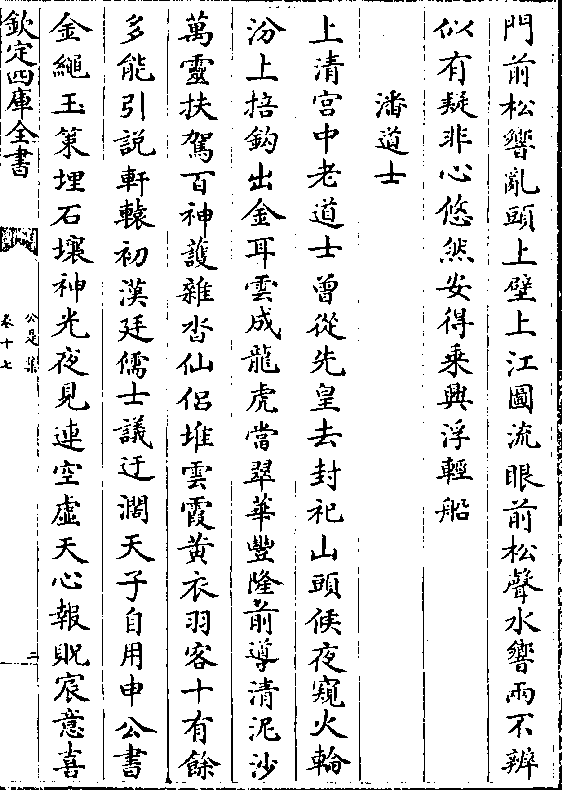 門前松響亂頭上壁上江圖流眼前松聲水響兩不辨
似有疑非心悠然安得乗興浮輕船
潘道士
上清宫中老道士曾從先皇去封祀山頭候夜窺火輪
汾上掊鈎出金耳雲成龍虎當翠華豐隆前導清泥沙
萬靈扶駕百神護雜沓仙侣堆雲霞黄衣羽客十有餘
多能引説軒轅初漢廷儒士議迂濶天子自用申公書
金繩玉策埋石壤神光夜見連空虚天心報貺宸意喜
欽定四庫全書
公是集
卷十七
二